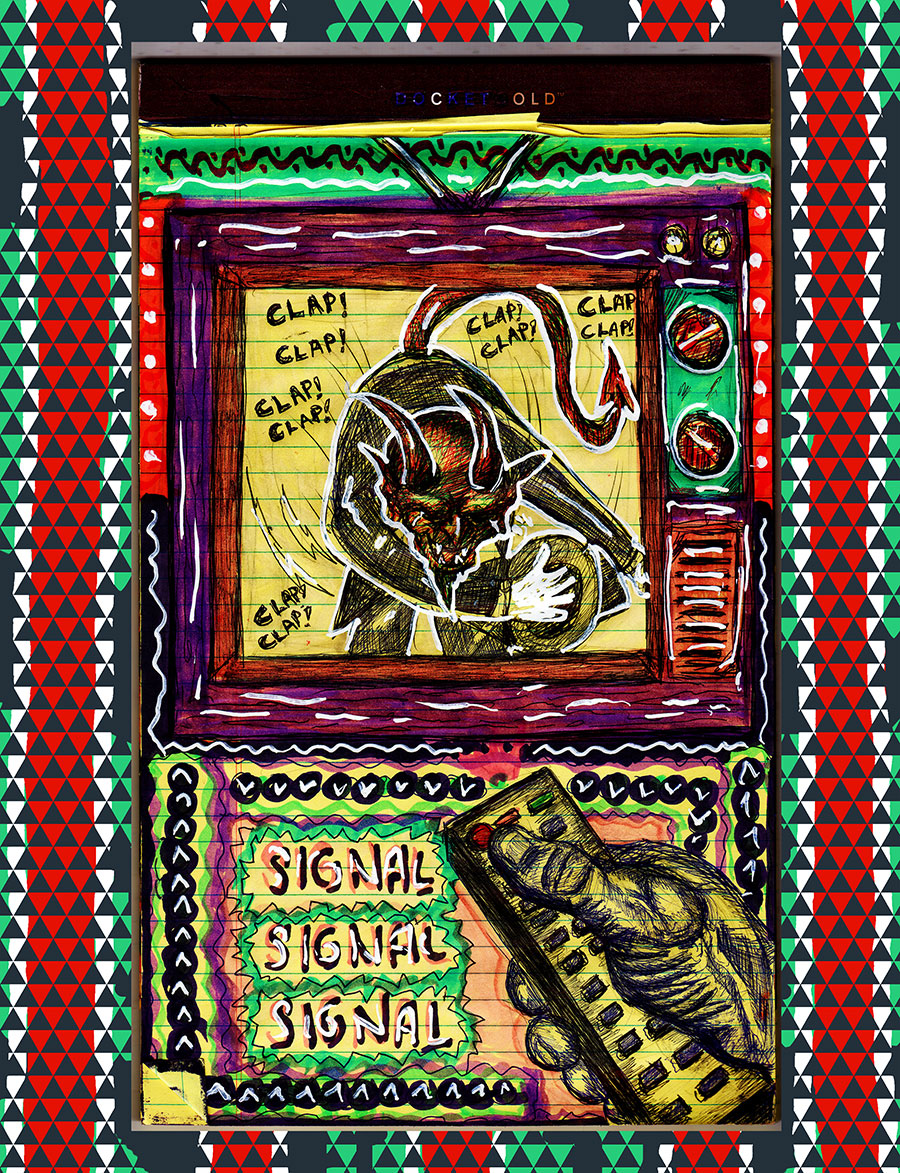 DOCKET GOLD™
CLAP!
CLAP!
CLAP!
CLAP!
CLAP!
CLAP!
CLAP
CLAP!
CLAP!
CLAP!
SIGNAL
SIGNAL
SIGNAL